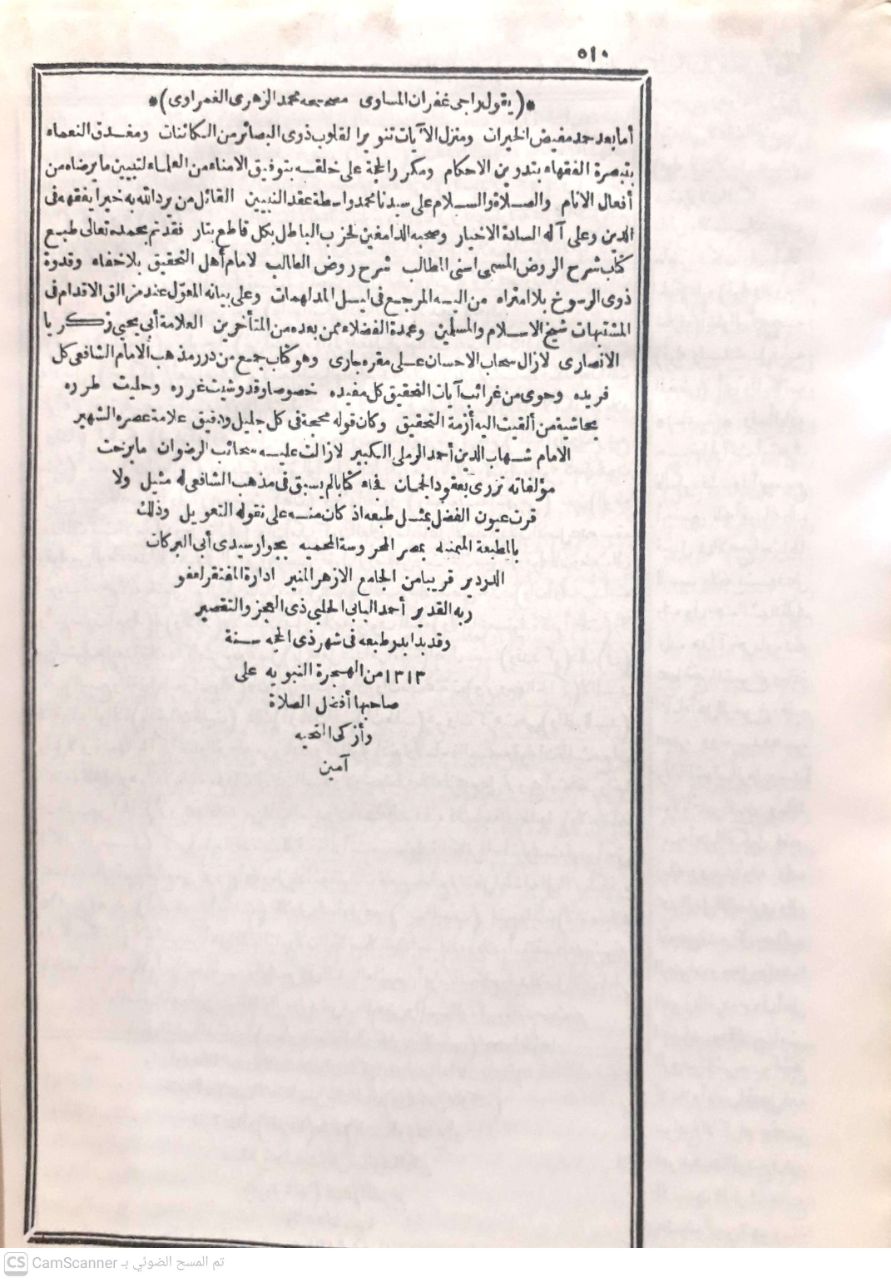 ٥١٠
*(يقول راجى غفران المساوى مصححه محمد الزهرى الغمراوى)*
أما بعد حمد مفيض الخيرات ومنزل الآيات تنويرا لقلوب ذوى البصائر من الكائنات ومغدق النعماء
بتبصرة الفقهاء بتدوين الاحكام ومكرر الحجة على خلقه بتوفيق الامناء من العلماء لتبيين ما يرضاه من
أفعال الانام والصلاة والسلام على سيدنا محمد واسطة عقد النبيين القائل من يرد الله به خيرا يفقهه فى
الدين وعلى آله السادة الاخيار وصحبه الدامغين لحزب الباطل بكل قاطع بتار فقد تم بحمده تعالى طبع
كتاب شرح الروض المسمى اسنى المطالب شرح روض الطالب لامام أهل التحقيق بلا خفاء وقدوة
ذوى الرسوخ بلا امتراء من اليه المرجع فى ليل المدلهمات وعلى بيانه المعول عند مزالق الاقدام فى
المشتبهات شيخ الاسلام والمسلمين وعمدة الفضلاء ممن بعده من المتأخرين العلامة أبى يحيى زكريا
الانصارى لازال سحاب الاحسان على مقره جارى وهو كتاب جمع من درر مذهب الامام الشافعى كل
فريده وحوى من غرائب آيات التحقيق كل مفيده خصوصا وقد وشيت غرره وحليت طرره
بحاشية من ألقيت اليه أزمة التحقيق وكان قوله حجة فى كل جليل ودقيق علامة عصره الشهير
الامام شهاب الدين أحمد الرملى الكبير لازالت عليه سحائب الرضوان ما برحت
مؤلفاته تزرى بعقود الجمان فجاء كتابا لم يسبق فى مذهب الشافعى له مثيل ولا
قرت عيون الفضل بمثل طبعه اذ كان منه على نقوله التعويل وذلك
بالمطبعة الميمنيه بمصر المحروسة المحميه بجوار سيدى أبى البركات
الدردير قريبا من الجامع الازهر المنير ادارة المفتقر لعفو
ربه القدير أحمد البابى الحلبى ذى العجز والتقصير
وقد بدا بدر طبعه فى شهر ذى الحجه سنة
١٣١٣ من الهجرة النبويه على
صاحبها أفضل الصلاة
وأزكى التحيه
آمين
CS CamScanner تم المسح الضوئي بـ